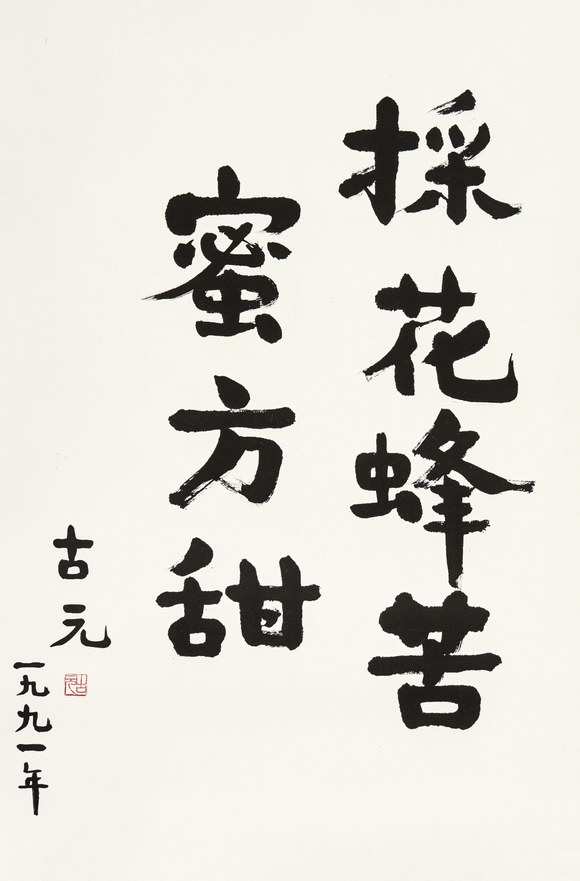 採花蜂苦
蜜方甜
古元
一九九一年
古元